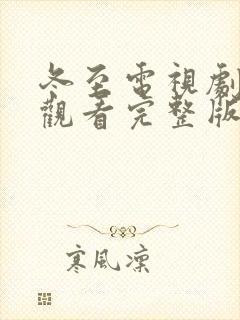 冬至電視劇
觀看完整版
寒風凜